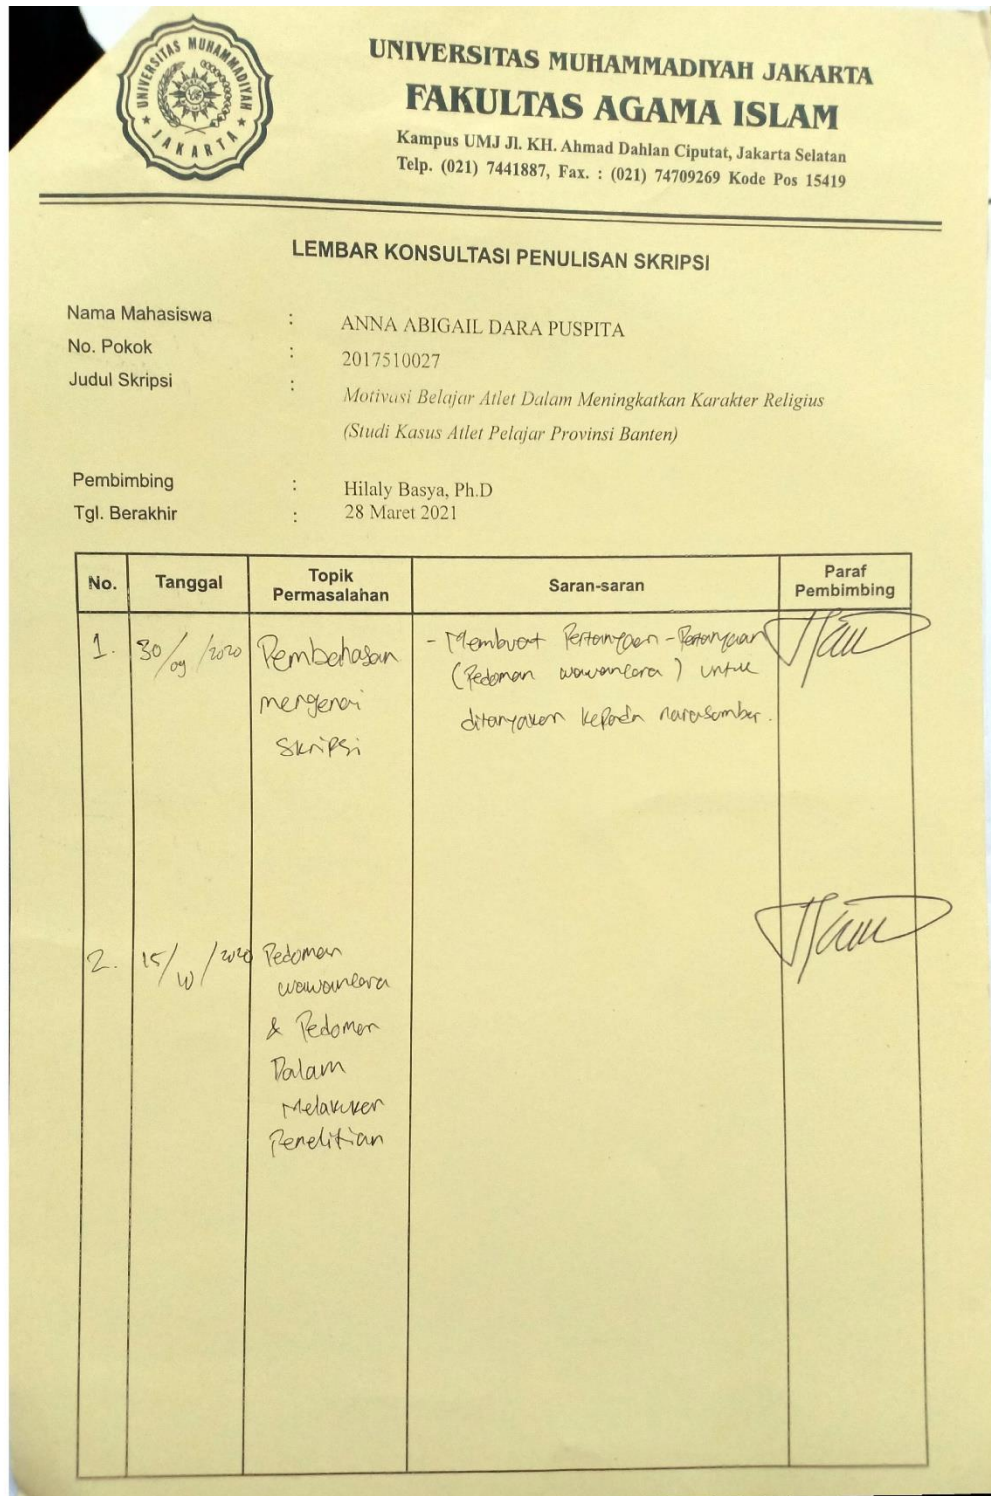 UNIVERSITAS MUHAMMADIYAH JAKARTA
UNIVERSITAS MUHAMMADIYAH JAKARTA
FAKULTAS AGAMA ISLAM
Kampus UMJ Jl. KH. Ahmad Dahlan Ciputat, Jakarta Selatan
Telp. (021) 7441887, Fax. : (021) 74709269 Kode Pos 15419
LEMBAR KONSULTASI PENULISAN SKRIPSI
Nama Mahasiswa : ANNA ABIGAIL DARA PUSPITA
No. Pokok : 2017510027
Judul Skripsi : Motivasi Belajar Atlet Dalam Meningkatkan Karakter Religius
(Studi Kasus Atlet Pelajar Provinsi Banten)
Pembimbing : Hilaly Basya, Ph.D
Tgl. Berakhir : 28 Maret 2021
No. Tanggal Topik Permasalahan Saran-saran Paraf Pembimbing
1. 30/09/2020 Pembahasan - Membuat Pertanyaan - Pertanyaan
mengenai (Pedoman wawancara) untuk
skripsi ditanyakan kepada narasumber.
2. 15/10/2020 Pedoman
wawancara
& Pedoman
Dalam
Melakukan
Penelitian